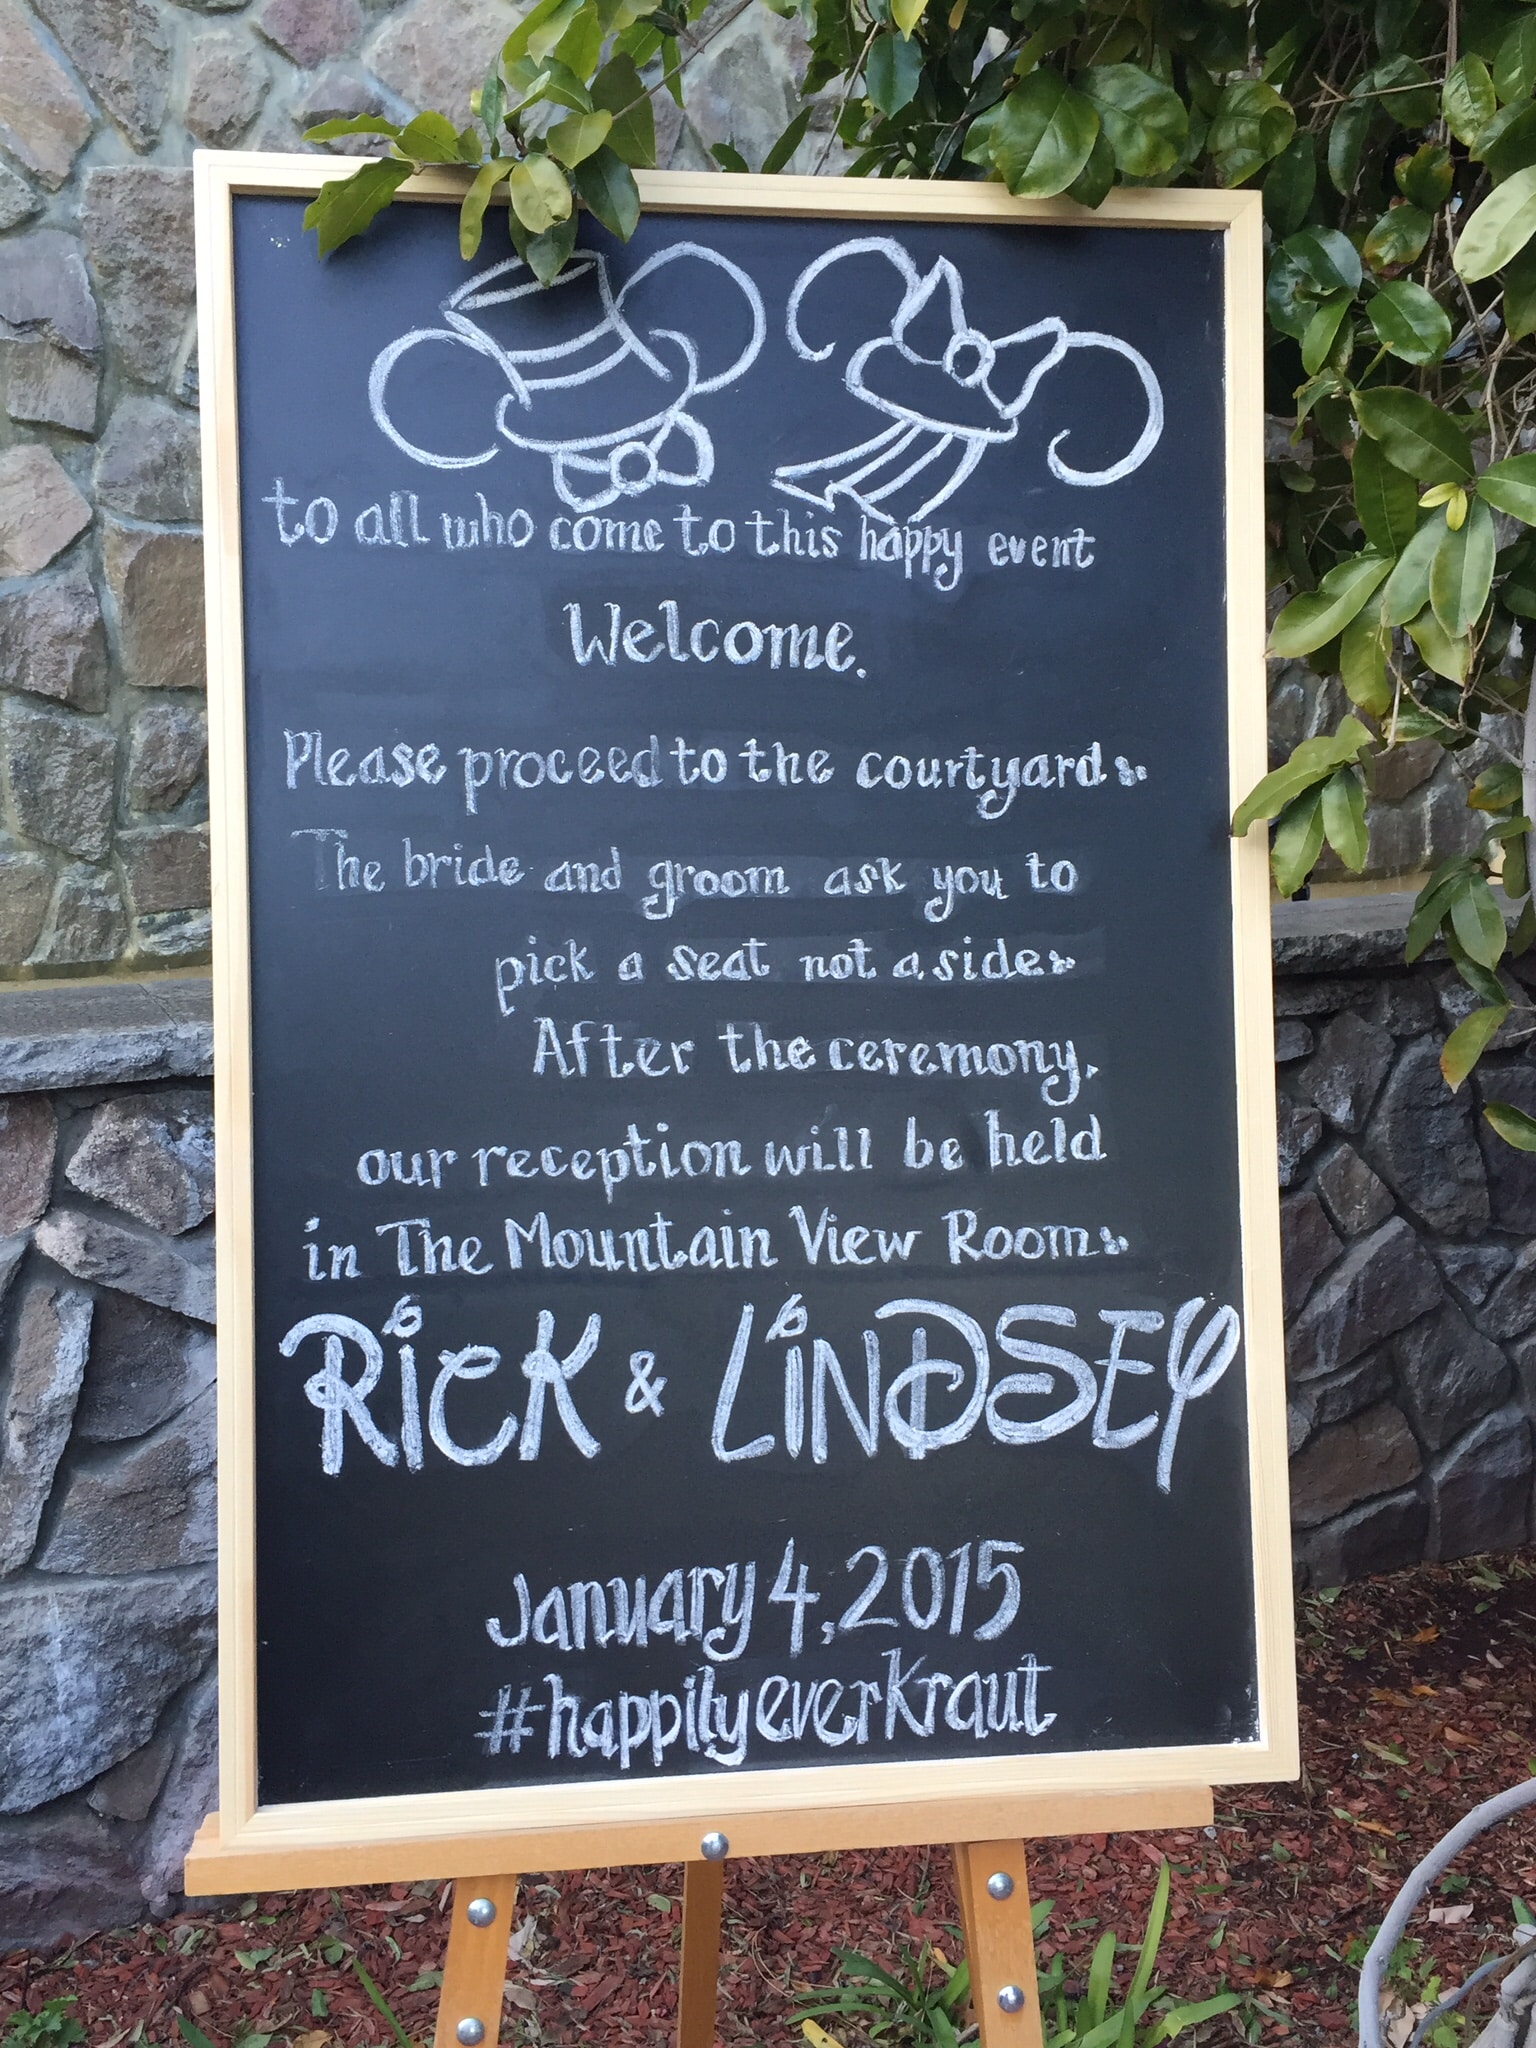 to all who come to this happy event
Welcome.
Please proceed to the courtyard.
The bride and groom ask you to
pick a seat not a side.
After the ceremony,
our reception will be held
in The Mountain View Room.
Rick & LiNDSEY
January 4, 2015
#happilyeverKraut